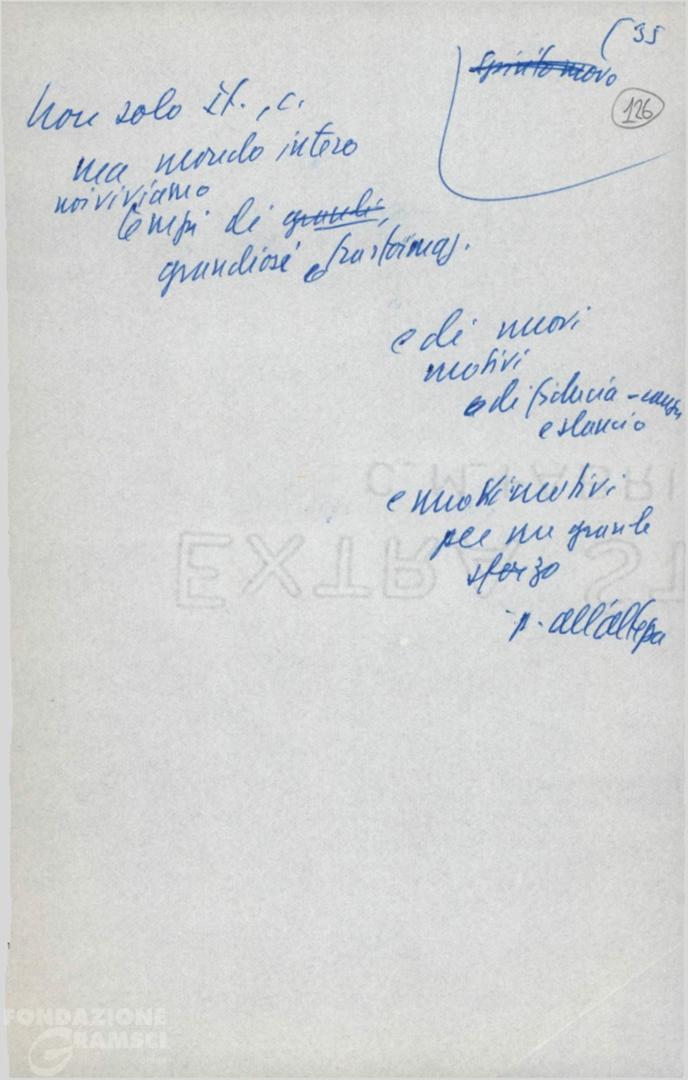 (35
spirito nuovo
126
Non solo It., c.
ma mondo intero
noi viviamo
tempi di grandi,
grandiose trasformaz.
e di nuovi
motivi
e di fiducia -
e slancio
e molti motivi
per un grande
sforzo
p. all'altezza
C. M. FABRI
EXTRA ST
FONDAZIONE
GRAMSCI